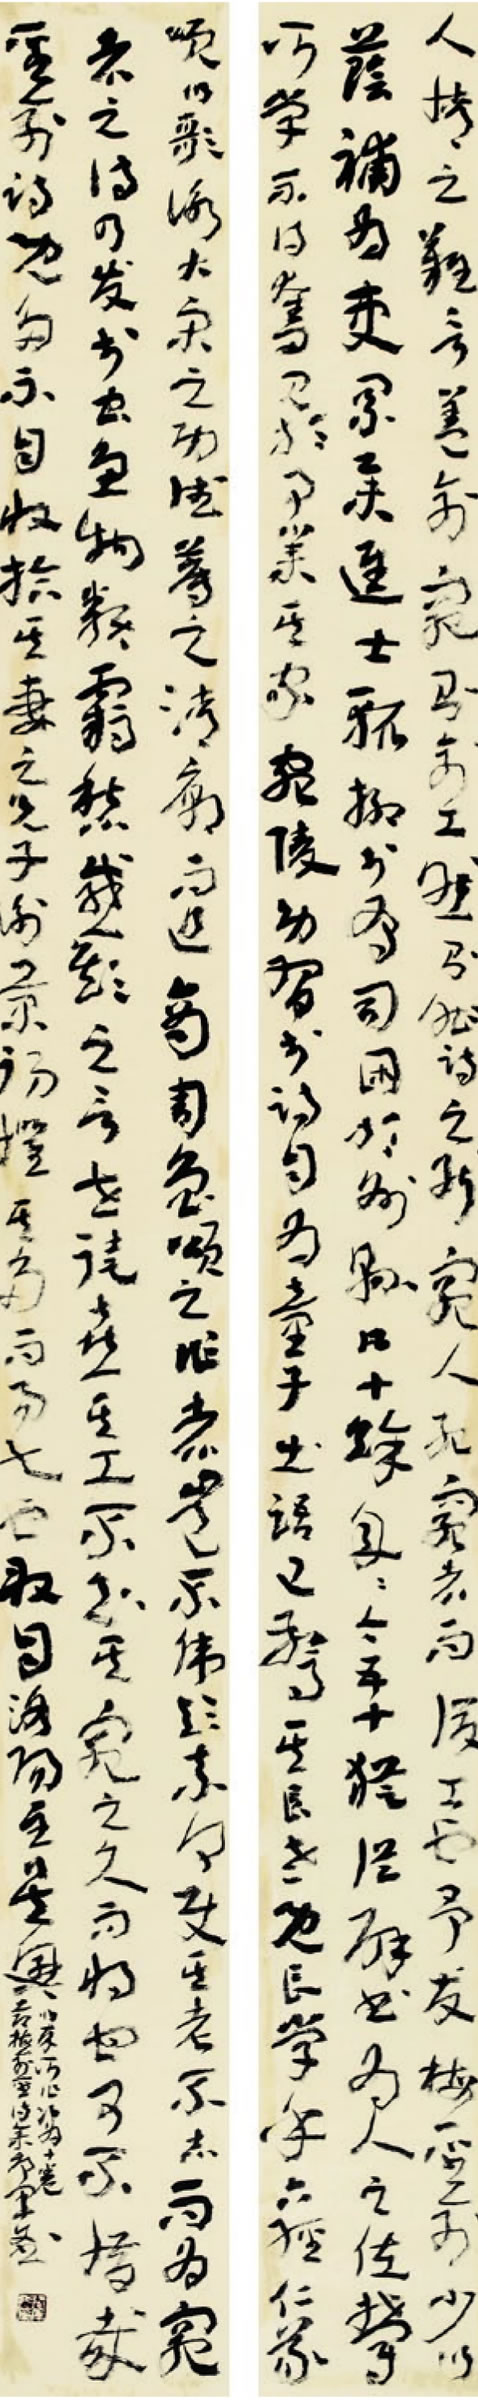 人情之難言蓋愈窮則愈工然則非詩之能窮人殆窮者而後工也予友梅聖俞少以
蔭補為吏累舉進士輒抑於有司困於州縣凡十餘年年今五十猶從辟書為人之佐鬱
所蓄不得奮見於事業其家宛陵幼習於詩自為童子出語已驚其長老既長學乎六經仁義
頌以歌詠大宋之功德薦之清廟而追商周魯頌之作者豈不偉歟奈何使其老不志而為窮
者之詩乃發於蟲魚物類羈愁感歎之言世徒喜其工不知其窮之久而將老也可不惜哉
聖俞詩既多不自收拾其妻之兄子謝景初懼其多而易失也取自洛陽至吳興
以來所作次為十卷